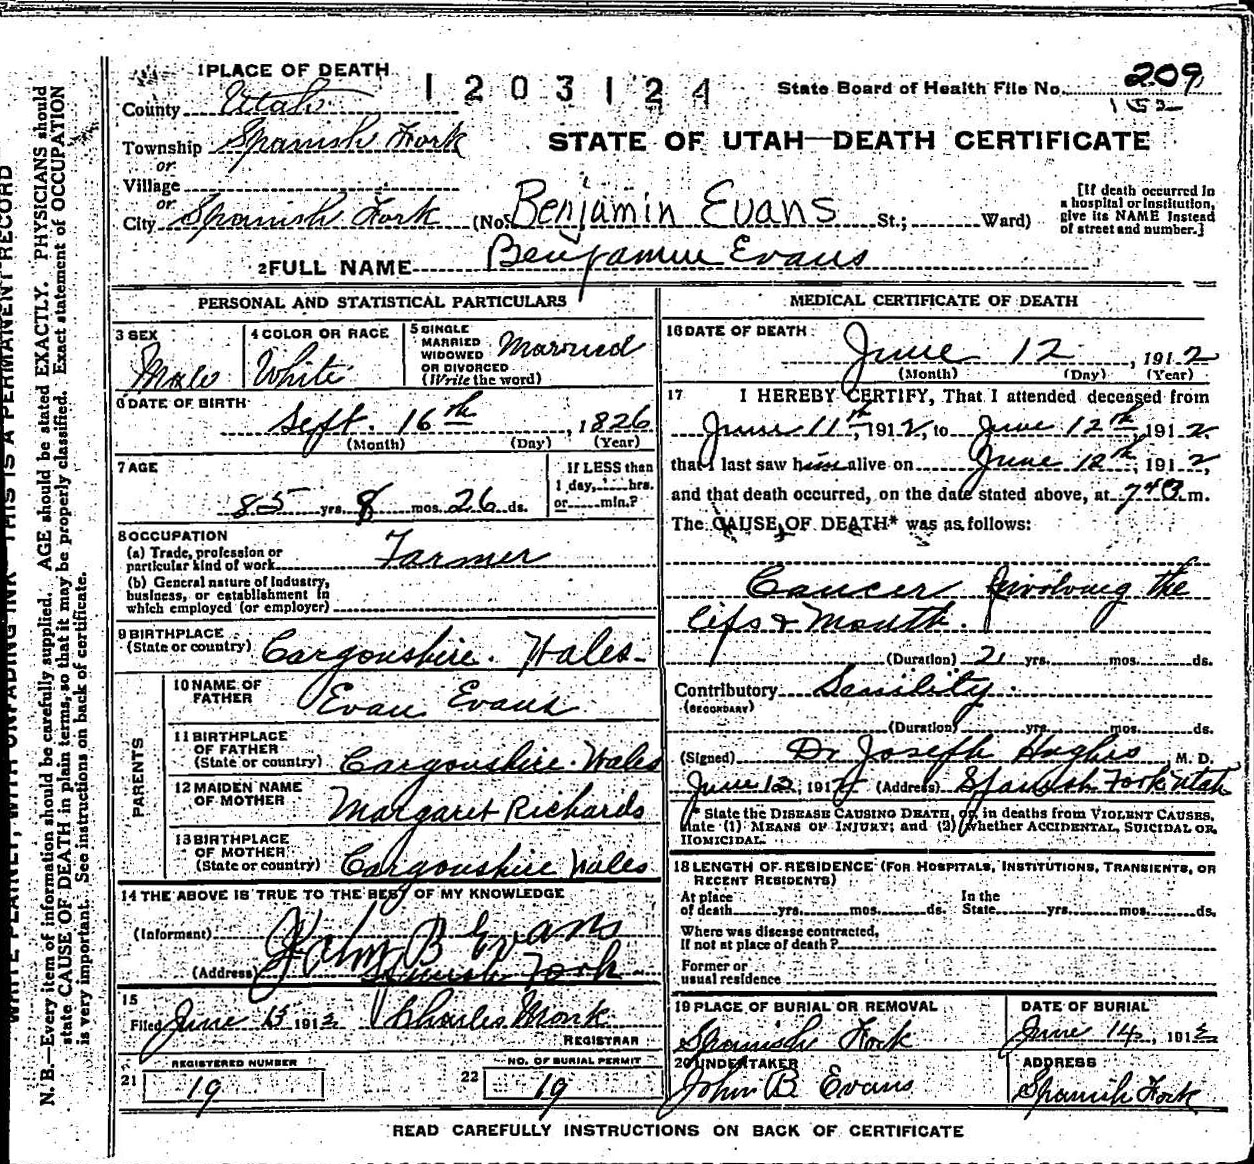 1 PLACE OF DEATH
1203124
State Board of Health File No. 209
152
County Utah
Township Spanish Fork
or
STATE OF UTAH—DEATH CERTIFICATE
Village
or
City Spanish Fork (No. Benjamin Evans St.; Ward)
[If death occurred in a hospital or institution, give its NAME instead of street and number.]
2 FULL NAME Benjamin Evans
PERSONAL AND STATISTICAL PARTICULARS
3 SEX Male
4 COLOR OR RACE White
5 SINGLE MARRIED WIDOWED OR DIVORCED (Write the word) Married
6 DATE OF BIRTH
Sept. 16th, 1826
(Month) (Day) (Year)
7 AGE
85 yrs. 8 mos. 26 ds.
If LESS than 1 day, hrs. or min.?
8 OCCUPATION
(a) Trade, profession or particular kind of work Farmer
(b) General nature of industry, business, or establishment in which employed (or employer)
9 BIRTHPLACE
(State or country) Cargonshire. Wales
PARENTS
10 NAME OF FATHER Evan Evans
11 BIRTHPLACE OF FATHER
(State or country) Cargonshire. Wales
12 MAIDEN NAME OF MOTHER Margaret Richards
13 BIRTHPLACE OF MOTHER
(State or country) Cargonshire Wales
14 THE ABOVE IS TRUE TO THE BEST OF MY KNOWLEDGE
(Informant) John B Evans
(Address) Spanish Fork
15
Filed June 15 1912 Charles Monk
REGISTRAR
REGISTERED NUMBER
21 19
NO. OF BURIAL PERMIT
22 19
MEDICAL CERTIFICATE OF DEATH
16 DATE OF DEATH
June 12, 1912
(Month) (Day) (Year)
17 I HEREBY CERTIFY, That I attended deceased from
June 11th, 1912, to June 12th 1912
that I last saw him alive on June 12th, 1912,
and that death occurred, on the date stated above, at 740 m.
The CAUSE OF DEATH* was as follows:
Cancer Involving the
lips & Mouth.
(Duration) 21 yrs. mos. ds.
Contributory Senility.
(SECONDARY)
(Duration) yrs. mos. ds.
(Signed) Dr Joseph Hughes M. D.
June 12, 1912 (Address) Spanish Fork Utah
* State the DISEASE CAUSING DEATH, or, in deaths from VIOLENT CAUSES,
state (1) MEANS OF INJURY; and (2) whether ACCIDENTAL, SUICIDAL OR,
HOMICIDAL.
18 LENGTH OF RESIDENCE (FOR HOSPITALS, INSTITUTIONS, TRANSIENTS, OR
RECENT RESIDENTS)
At place of death yrs. mos. ds. In the State yrs. mos. ds.
Where was disease contracted,
If not at place of death?
Former or
usual residence
19 PLACE OF BURIAL OR REMOVAL
Spanish Fork
DATE OF BURIAL
June 14, 1912
20 UNDERTAKER
John B Evans
ADDRESS
Spanish Fork
READ CAREFULLY INSTRUCTIONS ON BACK OF CERTIFICATE
WRITE PLAINLY, WITH UNFADING INK—THIS IS A PERMANENT RECORD
N. B.—Every item of information should be carefully supplied. AGE should be stated EXACTLY. PHYSICIANS should
state CAUSE OF DEATH in plain terms, so that it may be properly classified. Exact statement of OCCUPATION
is very important. See instructions on back of certificate.